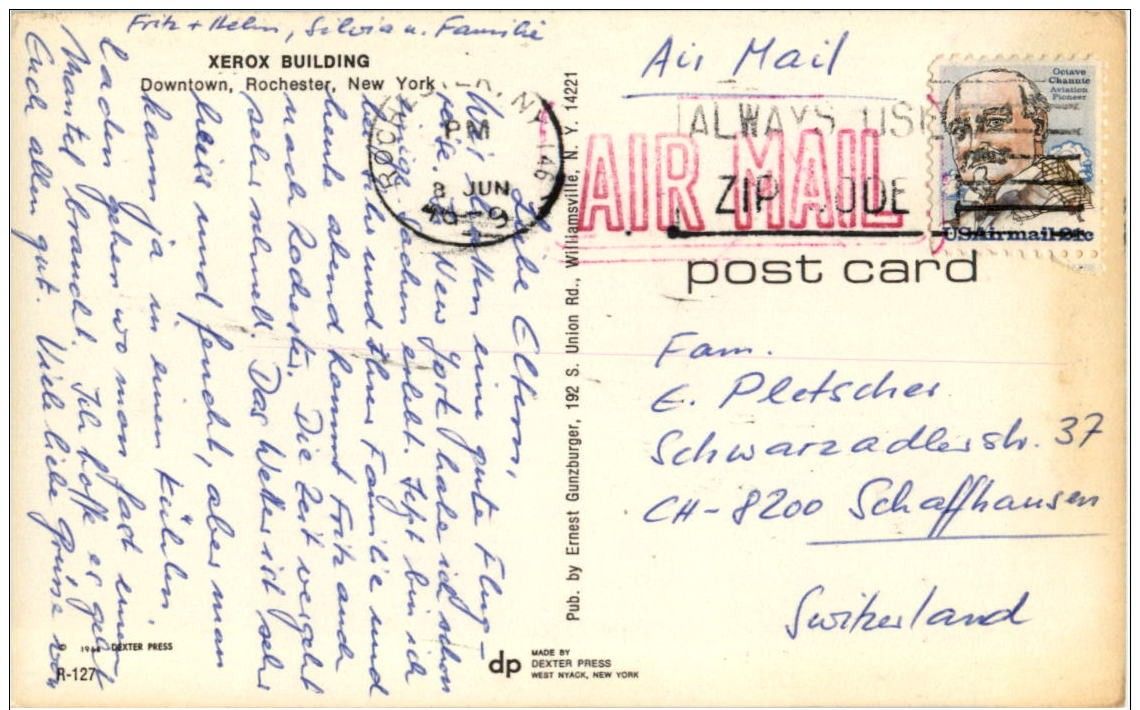 Fritz + Helen, Silvia u. Familie
XEROX BUILDING
Downtown, Rochester, New York
Liebe Eltern,
Wir hatten eine gute Flug-
reise. In New York habe ich schon
einige Sachen erlebt. Jetzt bin ich
bei und Ihrer Familie und
heute abend kommt Fritz auch
nach Rochester. Die Zeit vergeht
sehr schnell. Das Wetter ist sehr
heiss und feucht, aber man
kann ja in einen kühlen
Laden gehen wo man fast einen
Mantel braucht. Ich hoffe es geht
Euch allen gut. Viele liebe Grüsse von
© 1968 DEXTER PRESS
R-127
Pub. by Ernest Gunzburger, 192 S. Union Rd., Williamsville, N. Y. 14221
dp
MADE BY
DEXTER PRESS
WEST NYACK, NEW YORK
ROCHESTER, NY 146
PM
8 JUN
Air Mail
ALWAYS USE
ZIP CODE
AIR MAIL
Octave
Chanute
Aviation
Pioneer
USAirmail 21c
post card
Fam.
E. Pletscher
Schwarzadlerstr. 37
CH-8200 Schaffhausen
Switzerland